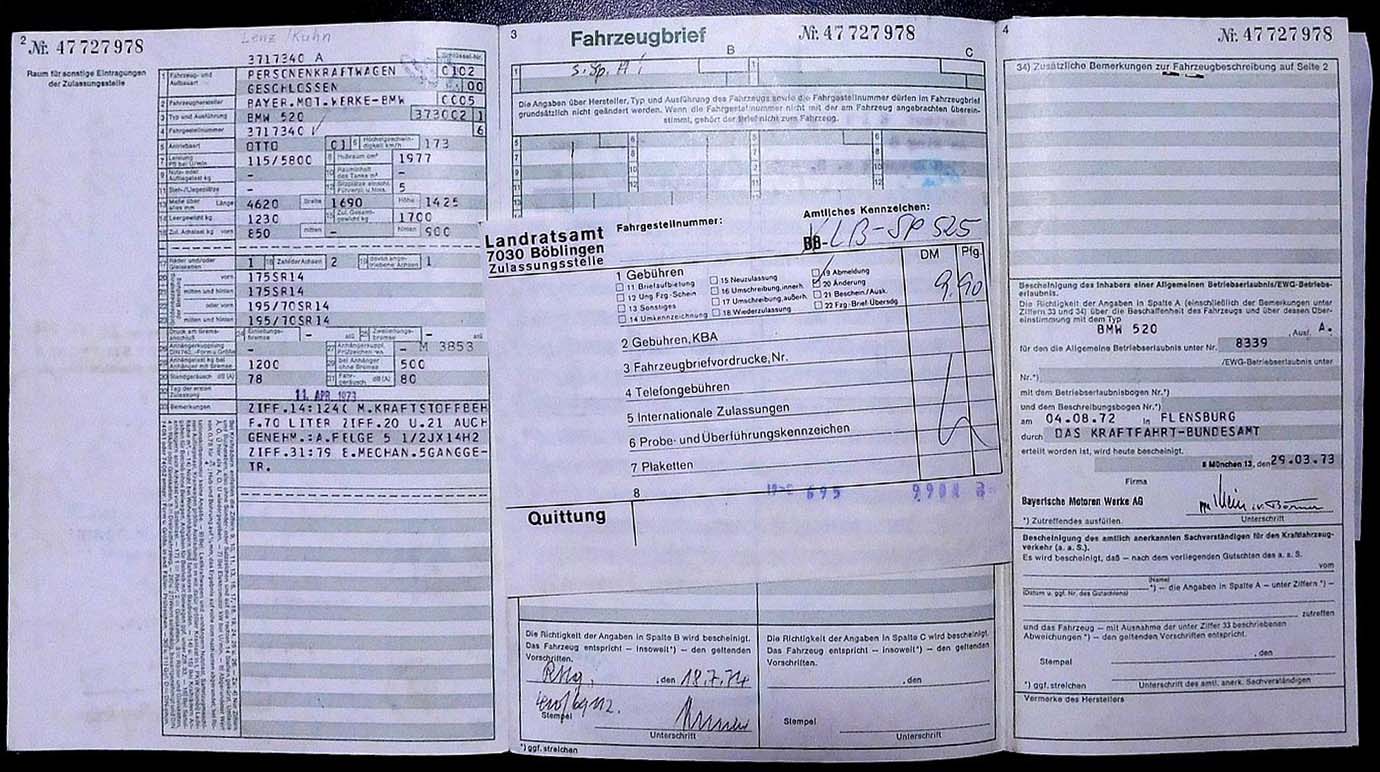 2 Nr. 47727978
Lenz / Kuhn
Raum für sonstige Eintragungen
der Zulassungsstelle
3717340 A
Schlüssel-Nr.
1 Fahrzeug- und Aufbauart PERSONENKRAFTWAGEN 0102
GESCHLOSSEN 00
2 Fahrzeughersteller BAYER.MOT.WERKE-BMW 0005
3 Typ und Ausführung BMW 520 373002 1
4 Fahrgestellnummer 3717340 6
5 Antriebsart OTTO 01 6 Höchstgeschwindigkeit km/h 173
7 Leistung PS bei U/min 115/5800 8 Hubraum cm³ 1977
9 Nutz- oder Aufliegelast kg – 10 Rauminhalt des Tanks m³ –
11 Steh-/Liegeplätze – 12 Sitzplätze einschl. Führerpl. u. Nots. 5
13 Maße über alles mm Länge 4620 Breite 1690 Höhe 1425
14 Leergewicht kg 1230 15 Zul. Gesamtgewicht kg 1700
16 Zul. Achslast kg vorn 850 mitten – hinten 900
17 Räder und/oder Gleisketten 1 18 Zahl der Achsen 2 19 davon angetriebene Achsen 1
20 vorn 175SR14
21 mitten und hinten 175SR14
22 oder vorn 195/70SR14
23 mitten und hinten 195/70SR14
Druck am Bremsanschluß Einleitungsbremse atü Zweileitungsbremse atü
Anhängerkuppl. Prüfzeichen – M 3853
28 Anhängelast kg bei Anhänger mit Bremse 1200 29 bei Anhänger ohne Bremse 500
30 Standgeräusch dB (A) 78 31 Fahrgeräusch dB (A) 80
32 Tag der ersten Zulassung 11. APR. 1973
33 Bemerkungen ZIFF.14:1240 M.KRAFTSTOFFBEH
F.70 LITER ZIFF.20 U.21 AUCH
GENEHM.:A.FELGE 5 1/2JX14H2
ZIFF.31:79 E.MECHAN.5GANGGE-
TR.
3 Fahrzeugbrief Nr. 47727978
B C
Die Angaben über Hersteller, Typ und Ausführung des Fahrzeugs sowie die Fahrgestellnummer dürfen im Fahrzeugbrief
grundsätzlich nicht geändert werden. Wenn die Fahrgestellnummer nicht mit der am Fahrzeug angebrachten überein-
stimmt, gehört der Brief nicht zum Fahrzeug.
Landratsamt
7030 Böblingen
Zulassungsstelle
Fahrgestellnummer:
Amtliches Kennzeichen:
BB- LB-SP 525
DM Pfg.
1 Gebühren
11 Briefaufbietung
12 Ung Fzg-Schein
13 Sonstiges
14 Umkennzeichnung
15 Neuzulassung
16 Umschreibung, innerh.
17 Umschreibung, außerh.
18 Wiederzulassung
19 Abmeldung
20 Änderung
21 Beschein./Ausk.
22 Fzg-Brief Übersdg
9,90
2 Gebühren, KBA
3 Fahrzeugbriefvordrucke, Nr.
4 Telefongebühren
5 Internationale Zulassungen
6 Probe- und Überführungskennzeichen
7 Plaketten
8
695
Quittung
Die Richtigkeit der Angaben in Spalte B wird bescheinigt.
Das Fahrzeug entspricht – insoweit*) – den geltenden
Vorschriften.
, den 18.7.74
Stempel
Unterschrift
*) ggf. streichen
Die Richtigkeit der Angaben in Spalte C wird bescheinigt.
Das Fahrzeug entspricht – insoweit*) – den geltenden
Vorschriften.
, den
Stempel
Unterschrift
4 Nr. 47727978
34) Zusätzliche Bemerkungen zur Fahrzeugbeschreibung auf Seite 2
Bescheinigung des Inhabers einer Allgemeinen Betriebserlaubnis/EWG-Betriebs-
erlaubnis.
Die Richtigkeit der Angaben in Spalte A (einschließlich der Bemerkungen unter
Ziffern 33 und 34) über die Beschaffenheit des Fahrzeugs und über dessen Über-
einstimmung mit dem Typ
BMW 520 , Ausf. A.
für den die Allgemeine Betriebserlaubnis unter Nr. 8339
/EWG-Betriebserlaubnis unter
Nr.*)
mit dem Betriebserlaubnisbogen Nr.*)
und dem Beschreibungsbogen Nr.*)
am 04.08.72 in FLENSBURG
durch DAS KRAFTFAHRT-BUNDESAMT
erteilt worden ist, wird heute bescheinigt.
8 München 13, den 29.03.73
Firma
Bayerische Motoren Werke AG
*) Zutreffendes ausfüllen.
Unterschrift
Bescheinigung des amtlich anerkannten Sachverständigen für den Kraftfahrzeug-
verkehr (a. a. S.).
Es wird bescheinigt, daß – nach dem vorliegenden Gutachten des a. a. S.
vom
(Name)
(Datum u. ggf. Nr. des Gutachtens)
*) – die Angaben in Spalte A – unter Ziffern *) –
zutreffen
und das Fahrzeug – mit Ausnahme der unter Ziffer 33 beschriebenen
Abweichungen *) – den geltenden Vorschriften entspricht.
Stempel
, den
*) ggf. streichen
Unterschrift des amtl. anerk. Sachverständigen
Vermerke des Herstellers